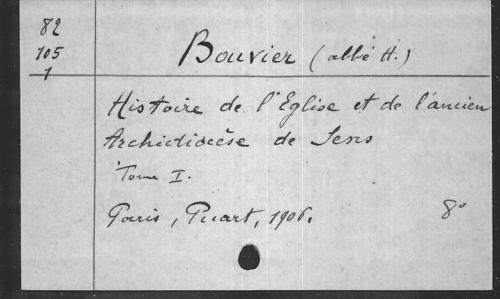 82
105
1
Bouvier (abbé H.)
Histoire de l'Eglise et de l'ancien
Archidiocèse de Sens
Tome I.
Paris, Picart, 1906. 8°